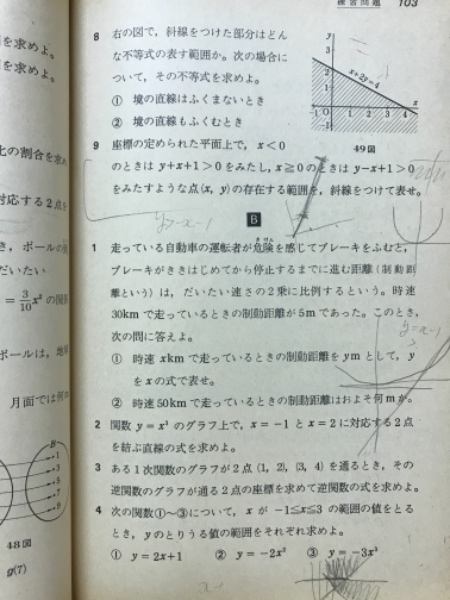 練習問題 103
を求めよ。
を求めよ。
比の割合を求め
対応する2点を
き，ボールの
だいたい
= 3/10 x² の関係
ボールは，地球
月面では何
B
1
3
5
7
9
48図
g(7)
8 右の図で，斜線をつけた部分はどん
な不等式の表す範囲か。次の場合に
ついて，その不等式を求めよ。
① 境の直線はふくまないとき
② 境の直線もふくむとき
y
3
2
1
-1
O
1 2 3 4
x
x+2y=4
49図
9 座標の定められた平面上で，x<0
のときは y+x+1>0 をみたし，x≧0 のときは y−x+1>0
をみたすような点(x, y)の存在する範囲を，斜線をつけて表せ。
y>-x-1
B
1 走っている自動車の運転者が危険を感じてブレーキをふむと，
きけん
ブレーキがききはじめてから停止するまでに進む距離（制動距
離という）は，だいたい速さの2乗に比例するという。時速
30kmで走っているときの制動距離が5mであった。このとき，
次の問に答えよ。
① 時速 xkmで走っているときの制動距離をymとして，y
をxの式で表せ。
② 時速50kmで走っているときの制動距離はおよそ何mか。
y=x-1
2 関数 y=x² のグラフ上で，x=−1 と x=2 に対応する2点
を結ぶ直線の式を求めよ。
3 ある1次関数のグラフが2点 (1, 2), (3, 4) を通るとき，その
逆関数のグラフが通る2点の座標を求めて逆関数の式を求めよ。
4 次の関数①〜③について，x が −1≦x≦3 の範囲の値をとる
とき，yのとりうる値の範囲をそれぞれ求めよ。
① y=2x+1 ② y=−2x² ③ y=−3x²